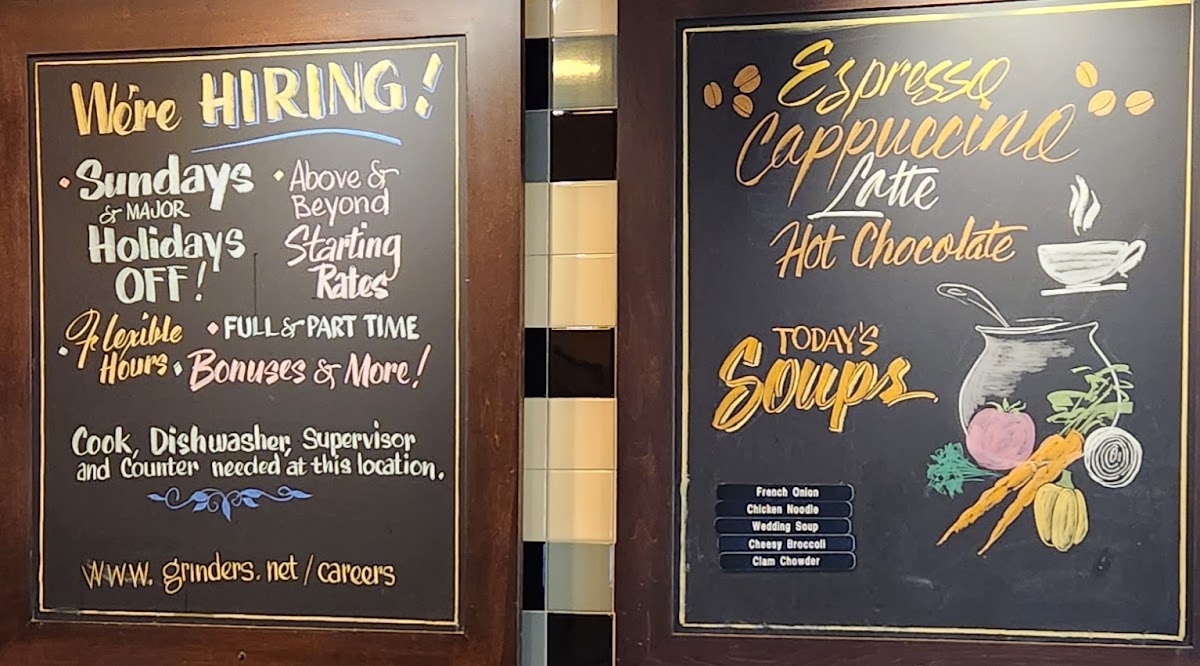 We're HIRING!
Sundays
& MAJOR
Holidays
OFF!
Above &
Beyond
Starting
Rates
Flexible
Hours
FULL & PART TIME
Bonuses & More!
Cook, Dishwasher, Supervisor
and Counter needed at this location.
www.grinders.net/careers
Espresso
Cappuccino
Latte
Hot Chocolate
TODAY'S
Soups
French Onion
Chicken Noodle
Wedding Soup
Cheesy Broccoli
Clam Chowder